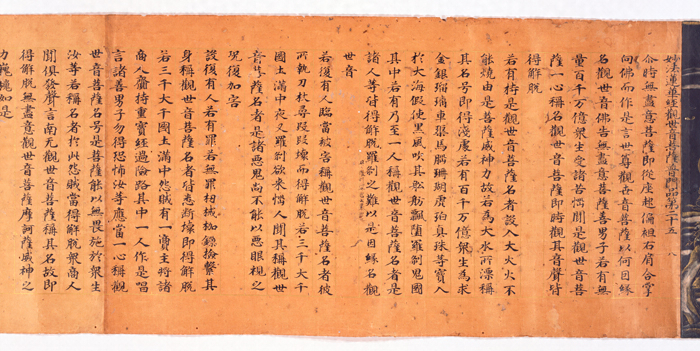 妙法蓮華經觀世音菩薩普門品第二十五 八
尒時無盡意菩薩即從座起偏袒右肩合掌
向佛而作是言世尊觀世音菩薩以何因緣
名觀世音佛告無盡意菩薩善男子若有無
量百千万億衆生受諸苦惱聞是觀世音菩
薩一心稱名觀世音菩薩即時觀其音聲皆
得解脫
若有持是觀世音菩薩名者設入大火火不
能燒由是菩薩威神力故若為大水所漂稱
其名号即得淺處若有百千万億衆生為求
金銀瑠璃車𤦲馬腦珊瑚虎珀真珠等寶入
於大海假使黒風吹其舩舫飄墮羅剎鬼國
其中若有乃至一人稱觀世音菩薩名者是
諸人等皆得解脫羅剎之難以是因緣名觀
世音
若復有人臨當被害稱觀世音菩薩名者彼
所執刀杖尋段段壞而得解脫若三千大千
國土滿中夜叉羅剎欲來惱人聞其稱觀世
音菩薩名者是諸惡鬼尚不能以惡眼視之
況復加害
設復有人若有罪若無罪杻械枷鏁撿繫其
身稱觀世音菩薩名者皆悉斷壞即得解脫
若三千大千國土滿中怨賊有一商主將諸
商人齎持重寶經過險路其中一人作是唱
言諸善男子勿得恐怖汝等應當一心稱觀
世音菩薩名号是菩薩能以無畏施於衆生
汝等若稱名者於此怨賊當得解脫衆商人
聞俱發聲言南无觀世音菩薩稱其名故即
得解脫無盡意觀世音菩薩摩訶薩威神之
力巍巍如是